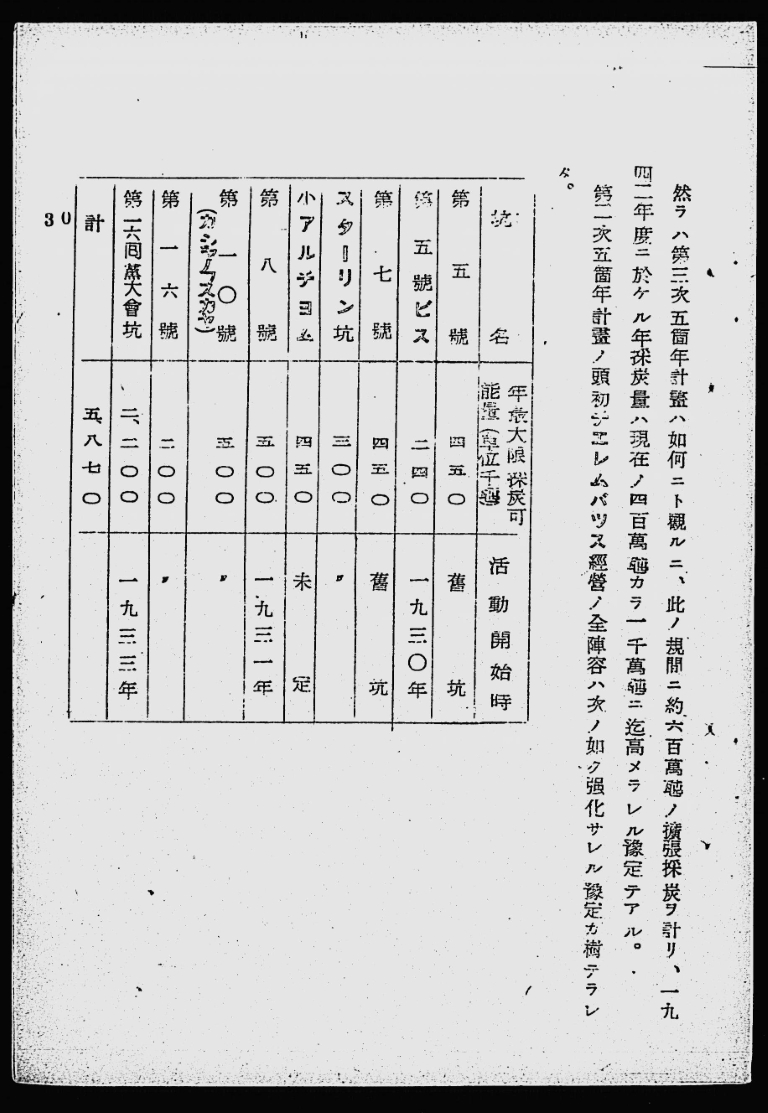 然ラハ第三次五箇年計畫ハ如何ニト觀ルニ、此ノ期間ニ約六百萬瓲ノ擴張採炭ヲ計リ、一九
四二年度ニ於ケル年採炭量ハ現在ノ四百萬瓲カラ一千萬瓲ニ迄高メラレル豫定テアル。
第二次五箇年計畫ノ頭初チエレムバツス經營ノ全陣容ハ次ノ如ク强化サレル豫定カ樹テラレ
タ。
坑名 年最大限採炭可能量(單位千瓲) 活動開始時
第五號 四五〇 舊坑
第五號ビス 二四〇 一九三〇年
第七號 四五〇 舊坑
スターリン坑 三〇〇 〃
小アルチヨム 四五〇 未定
第八號 五〇〇 一九三一年
第一〇號 五〇〇 〃
第一六號 二〇〇 〃
第一六囘黨大會坑 二、二〇〇 一九三三年
計 五、八七〇
30